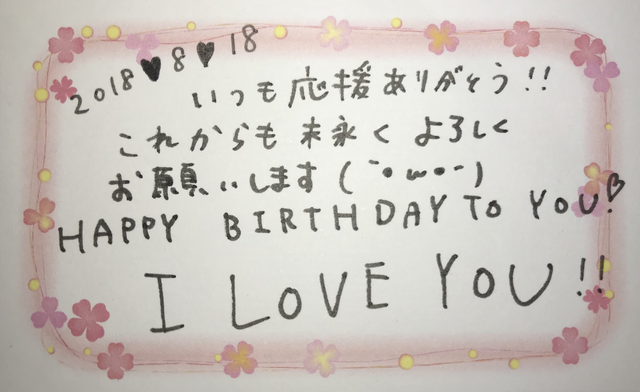 2018♥8♥18
いつも応援ありがとう!!
これからも末永くよろしく
お願いします(´•ω•`)
HAPPY BIRTHDAY TO YOU!♡
I LOVE YOU!!